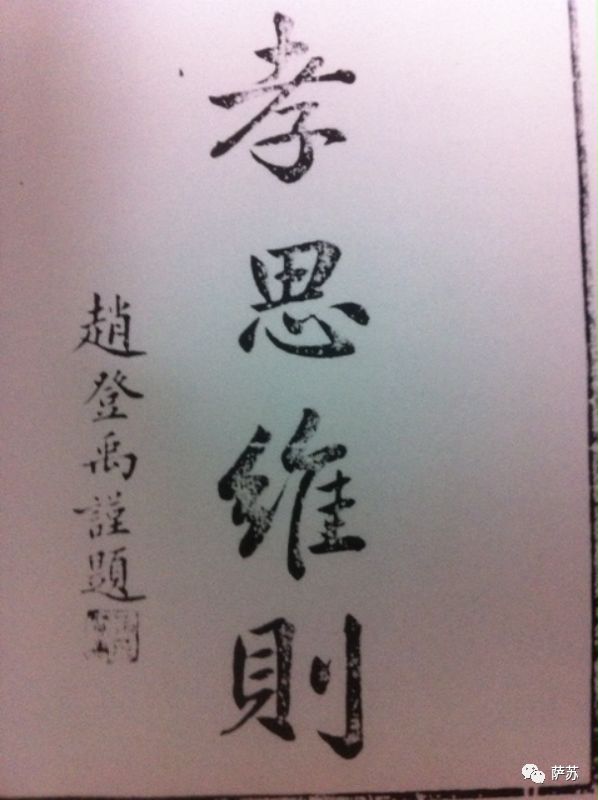 孝思維則
趙登禹謹題
萨苏